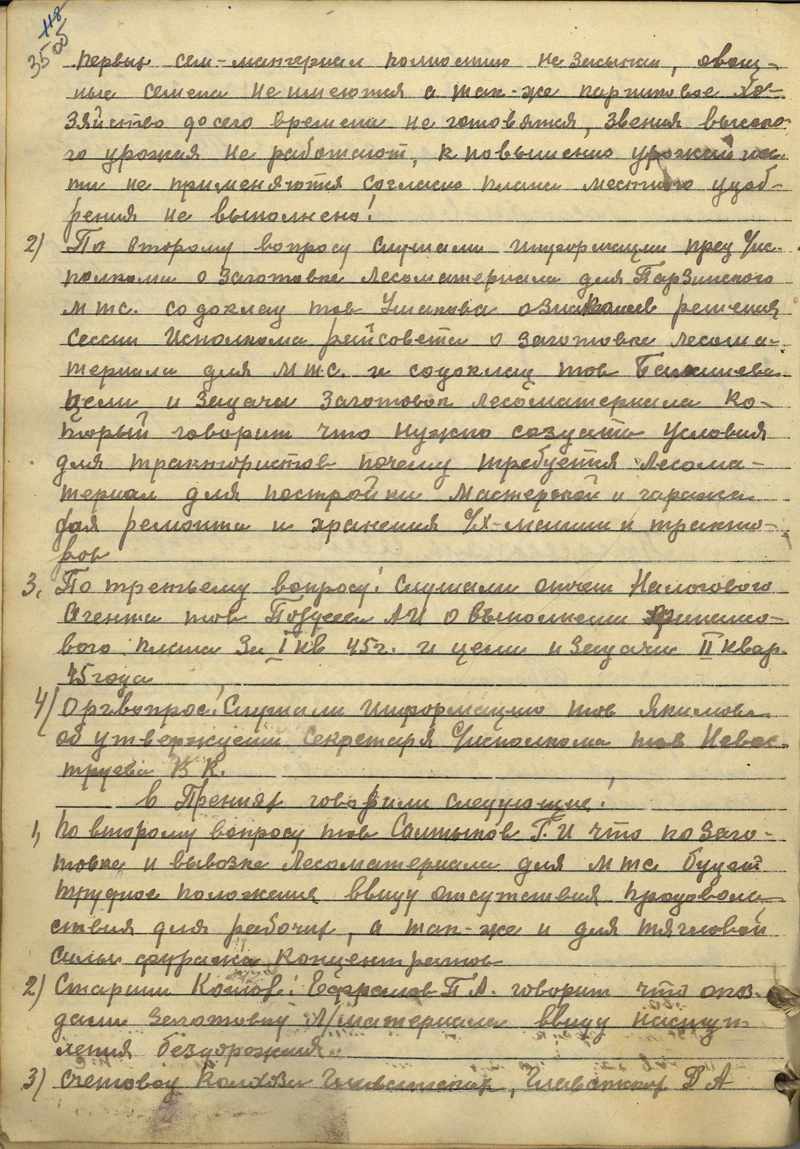 118
35 об
первых сем-материал полностью не засыпан, овощ-
ные семена не имеются а так-же парниковое хо-
зяйство досего времени не готовятся, звения высоко-
го урожая не работают, к повышению урожайнос-
ти не применяются согласно плана местного удоб-
рения не выполнено!
2) По второму вопросу слушали информации пред Ис-
полкома о заготовке лесоматериала для Парзинского
мтс. содоклад тов Ушакова ознакомив решения
сессии Исполкома райсовета о заготовке лесома-
териала для мтс. и содоклад тов
цели и задачи заготовок лесоматериала ко-
торый говорит что нужно создать условия
для трактористов почему требуется лесома-
териал для постройки мастерской и гаража
для ремонта и хранения с/х-машин и тракто-
ров
3, По третьему вопросу! Слушали отчет Налогового
Агента тов АИ о выполнении финансо-
вого плана за I кв 45г. и цели и задачи II квар.
45 года
4/ Оргвопрос! Слушали информацию тов Якимова
об утверждении секретаря Исполкома тов Невос-
труева В К.
в Прениях говорили следующие!
1, по второму вопросу тов Салтыков Г.И что по заго-
товке и вывозке лесоматериала для мтс будет
трудное положения ввиду отсутствия продоволь-
ствия для рабочих, а так-же и для тягловой
силы фуража концентратов
2) Старши Колхоз: Ефремов П.А. говорит что опоз-
дали заготовкой л/материала ввиду наступ-
ления бездорожия.
3) Счетовод Колхоза Д А